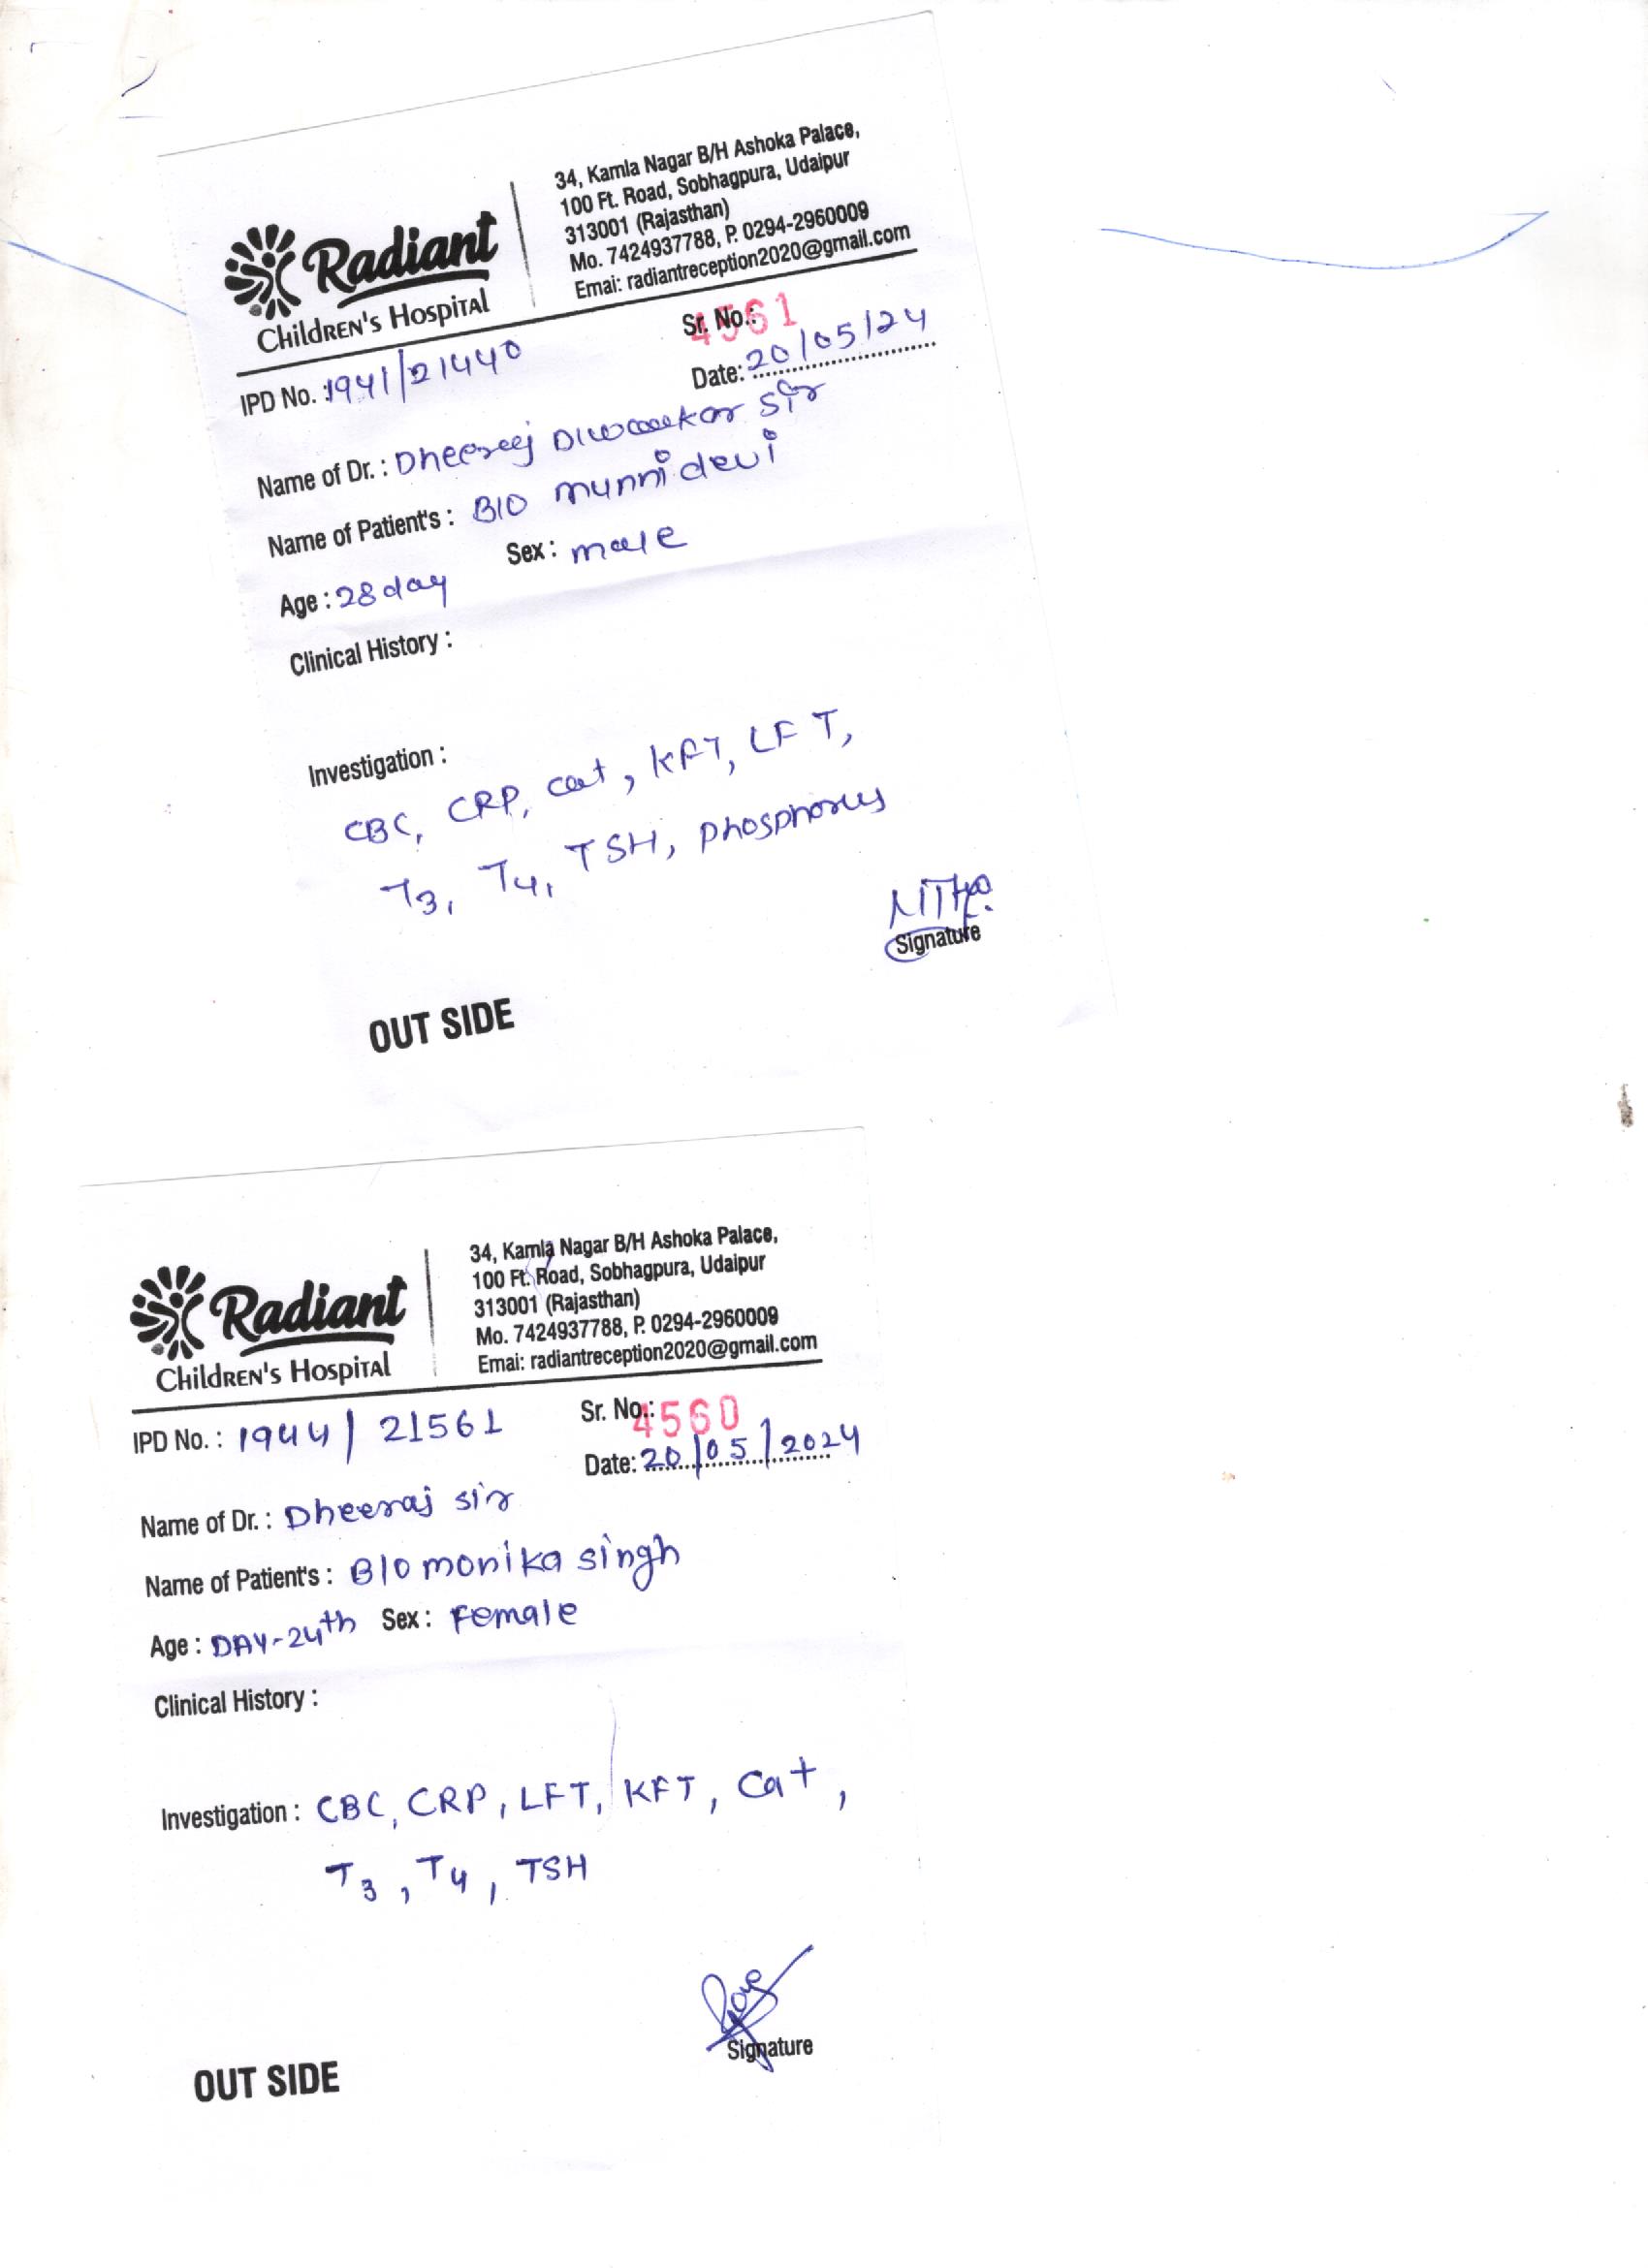 Radiant
Children's Hospital
34, Kamla Nagar B/H Ashoka Palace,
100 Ft. Road, Sobhagpura, Udaipur
313001 (Rajasthan)
Mo. 7424937788, P. 0294-2960009
Emai: radiantreception2020@gmail.com
IPD No. : 1941/21440
Sr. No.: 4561
Date: 20/05/24
Name of Dr. : Dheeraj Diwaakar Sir
Name of Patient's : B/O munni devi
Age : 28 day Sex : male
Clinical History :
Investigation :
CBC, CRP, cat, KFT, LFT,
T3, T4, TSH, phosphorus
Signature
OUT SIDE
Radiant
Children's Hospital
34, Kamla Nagar B/H Ashoka Palace,
100 Ft. Road, Sobhagpura, Udaipur
313001 (Rajasthan)
Mo. 7424937788, P. 0294-2960009
Emai: radiantreception2020@gmail.com
IPD No. : 1944/21561
Sr. No.: 4560
Date: 20/05/2024
Name of Dr. : Dheeraj sir
Name of Patient's : B/O monika singh
Age : DAY-24th Sex : Female
Clinical History :
Investigation : CBC, CRP, LFT, KFT, Cat,
T3, T4, TSH
Signature
OUT SIDE